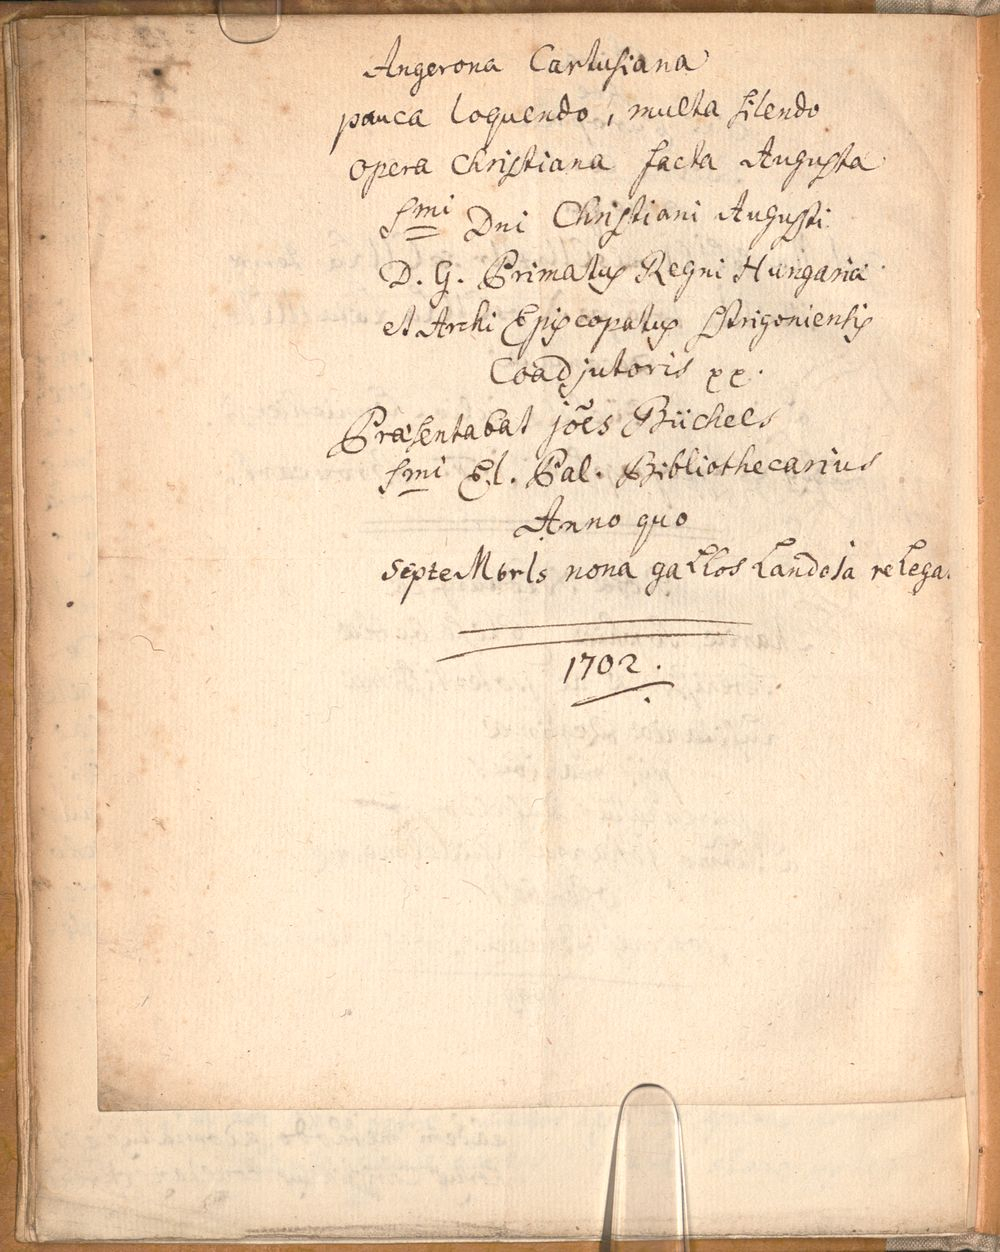 Angerona Cartusiana
pauca loquendo, multa silendo
opera Christiana facta Augusta
Smi Dni Christiani Augusti
D. G. Primatus Regni Hungariæ
et Archi Episcopatus Strigoniensis
Coadjutoris xx.
Præsentabat joēs Büchels
Smi El. Pal. Bibliothecarius
Anno quo
septeMbrIs nona gaLLos LanDoIa reLega.
1702.